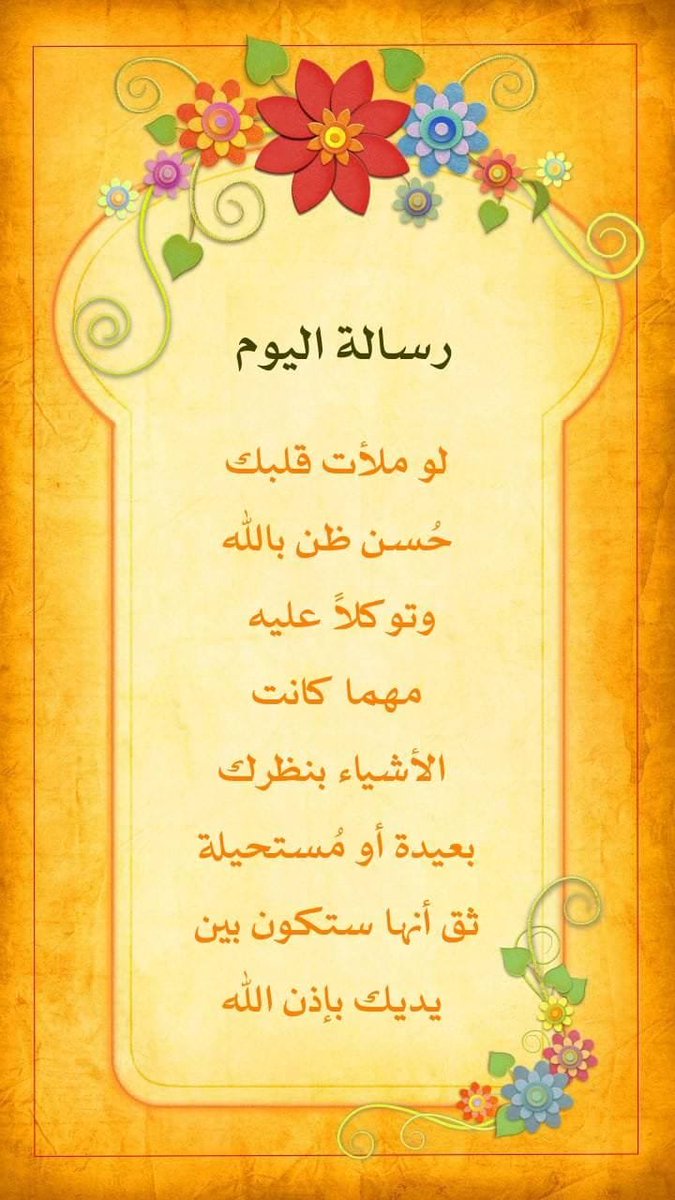 رسالة اليوم
لو ملأت قلبك
حُسن ظن بالله
وتوكلاً عليه
مهما كانت
الأشياء بنظرك
بعيدة أو مُستحيلة
ثق أنها ستكون بين
يديك بإذن الله